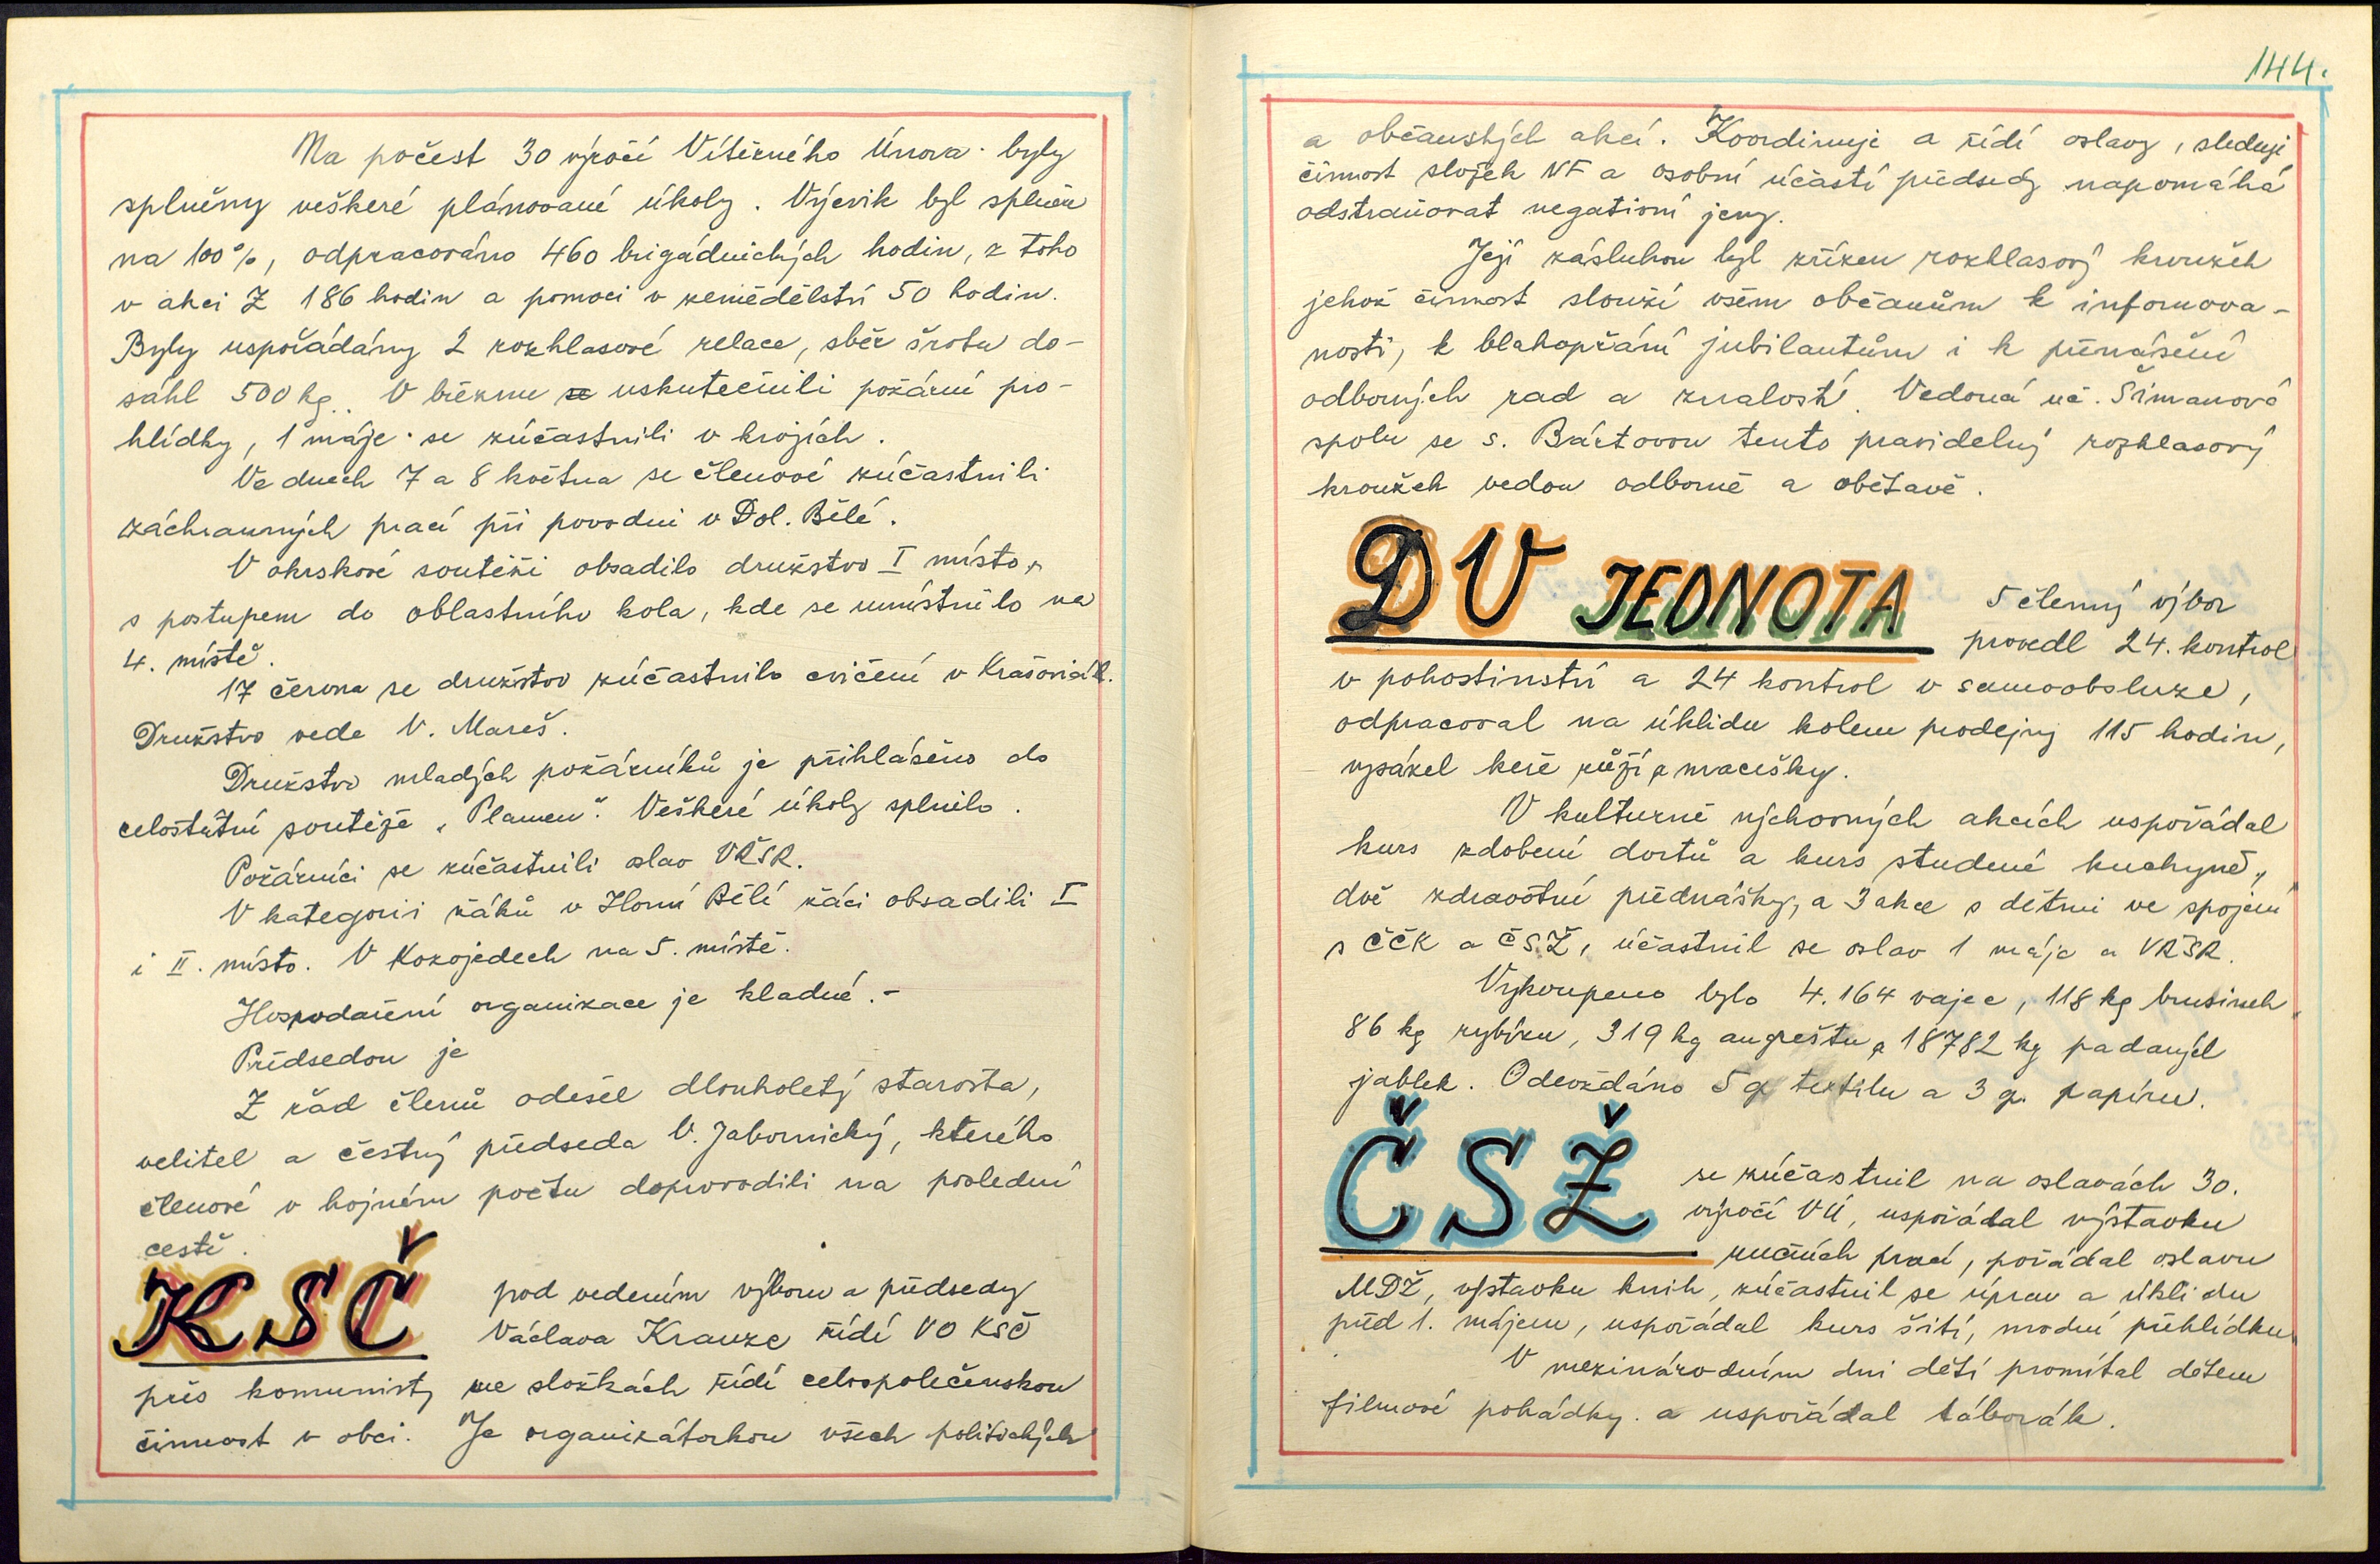 Na počest 30 výročí Vítězného Února byly
splněny veškeré plánované úkoly. Výjezdik byl splněn
na 100%, odpracováno 460 brigádnických hodin, z toho
v akci Z 186 hodin a pomoci v zemědělství 50 hodin.
Byly uspořádány 2 rozhlasové relace, sběr šrotu do-
sáhl 500 kg. V březnu se uskutečnili požární pro-
hlídky, 1 máje se zúčastnili v krojích.
Ve dnech 7 a 8 května se členové zúčastnili
záchranných prací při povodni v Dol. Bělé.
V okrskové soutěži obsadilo družstvo I místo,
s postupem do oblastního kola, kde se umístnilo na
4. místě.
17 června se družstvo zúčastnilo cvičení v Krašovicích.
Družstvo vede V. Mareš.
Družstvo mladých požárníků je přihlášeno do
celostátní soutěže „Plamen". Veškeré úkoly splnilo.
Požárníci se zúčastnili oslav VŘSR.
V kategorii žáků v Horní Bělé žáci obsadili I
i II. místo. V Kozojedech na 5. místě.
Hospodaření organizace je kladné.-
Předsedou je
Z řad členů odešel dlouholetý starosta,
velitel a čestný předseda V. Jabornický, kterého
členové v hojném počtu doprovodili na poslední
cestě.
KSČ pod vedením výboru a předsedy
Václava Krauze řídí VO KSČ
přes komunisty ve složkách řídí celospolečenskou
činnost v obci. Je organizátorkou všech politických
144.
a občanských akcí. Koordinuje a řídí oslavy, sleduje
činnost složek NF a osobní účastí předsedy napomáhá
odstraňovat negativní jevy.
Její zásluhou byl zřízen rozhlasový kroužek
jehož činnost slouží všem občanům k informova-
nosti, k blahopřání jubilantům i k přenášení
odborných rad a znalostí. Vedoucí uč. Šimanová
spolu se s. Bártovou tento pravidelný rozhlasový
kroužek vedou odborně a obětavě.
DV JEDNOTA 5 členný výbor
provedl 24. kontrol
v pohostinství a 24 kontrol v samoobsluze,
odpracoval na úklidu kolem prodejny 115 hodin,
vysázel keře růží a macešky.
V kulturně výchovných akcích uspořádal
kurs zdobení dortů a kurs studené kuchyně,
dvě zdravotní přednášky, a 3 akce s dětmi ve spojení
s ČČK a ČSŽ, účastnil se oslav 1 máje a VŘSR.
Vykoupeno bylo 4.164 vajec, 118 kg brusinek
86 kg rybízu, 319 kg angreštu a 18782 kg padaných
jablek. Odevzdáno 5 q textilu a 3 q. papíru.
ČSŽ se zúčastnil na oslavách 30.
výročí VÚ, uspořádal výstavku
ručních prací, pořádal oslavu
MDŽ, výstavku knih, zúčastnil se úprav a úklidu
před 1. májem, uspořádal kurs šití, modní přehlídku
V mezinárodním dni dětí promítal dětem
filmové pohádky. a uspořádal táborák.